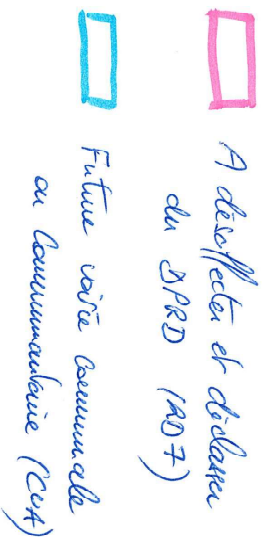 A désaffecter et déclasser
du DPRD (RD7)
Future voirie communale
ou Communautaire (CUA)